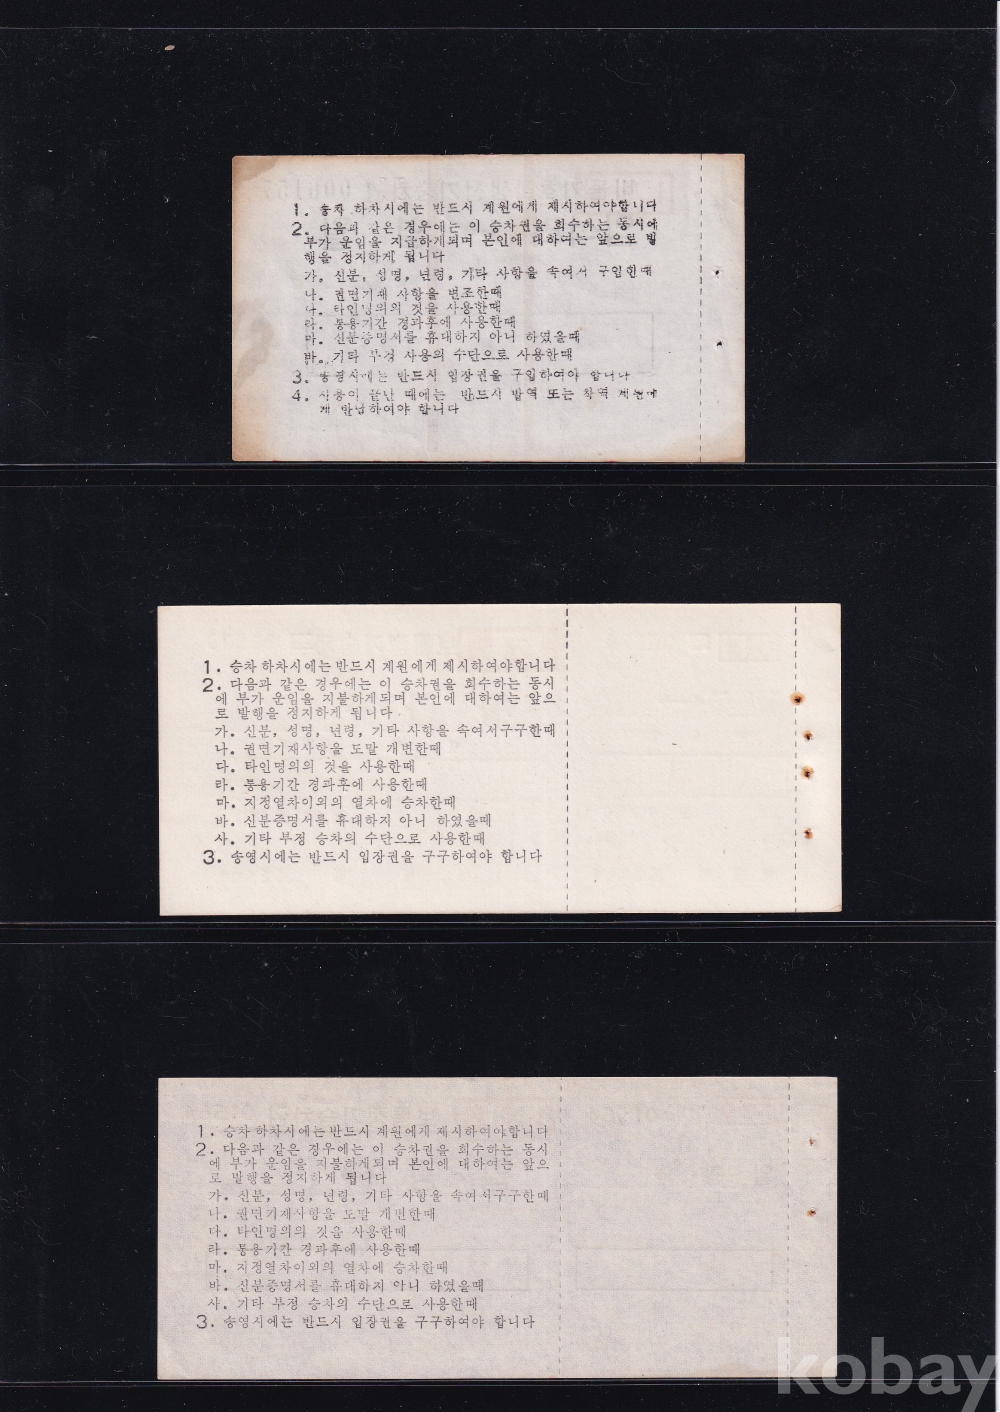 1. 승차 하차시에는 반드시 계원에게 제시하여야합니다
2. 다음과 같은 경우에는 이 승차권을 회수하는 동시에
부가 운임을 지급하게되며 본인에 대하여는 앞으로 발
행을 정지하게 됩니다
가. 신분, 성명, 년령, 기타 사항을 속여서 구입한때
나. 권면기재 사항을 변조한때
다. 타인명의의 것을 사용한때
라. 통용기간 경과후에 사용한때
마. 신분증명서를 휴대하지 아니 하였을때
바. 기타 부정 사용의 수단으로 사용한때
3. 송영시에는 반드시 입장권을 구입하여야 합니다
4. 사용이 끝난 때에는 반드시 발역 또는 착역 계원에
게 반납하여야 합니다
1. 승차 하차시에는 반드시 계원에게 제시하여야합니다
2. 다음과 같은 경우에는 이 승차권을 회수하는 동시
에 부가 운임을 지불하게되며 본인에 대하여는 앞으
로 발행을 정지하게 됩니다.
가. 신분, 성명, 년령, 기타 사항을 속여서구구한때
나. 권면기재사항을 도말 개변한때
다. 타인명의의 것을 사용한때
라. 통용기간 경과후에 사용한때
마. 지정열차이외의 열차에 승차한때
바. 신분증명서를 휴대하지 아니 하였을때
사. 기타 부정 승차의 수단으로 사용한때
3. 송영시에는 반드시 입장권을 구구하여야 합니다
1. 승차 하차시에는 반드시 계원에게 제시하여야합니다
2. 다음과 같은 경우에는 이 승차권을 회수하는 동시
에 부가 운임을 지불하게되며 본인에 대하여는 앞으
로 발행을 정지하게 됩니다
가. 신분, 성명, 년령, 기타 사항을 속여서구구한때
나. 권면기재사항을 도말 개변한때
다. 타인명의의 것을 사용한때
라. 통용기간 경과후에 사용한때
마. 지정열차이외의 열차에 승차한때
바. 신분증명서를 휴대하지 아니 하였을때
사. 기타 부정 승차의 수단으로 사용한때
3. 송영시에는 반드시 입장권을 구구하여야 합니다
kobay